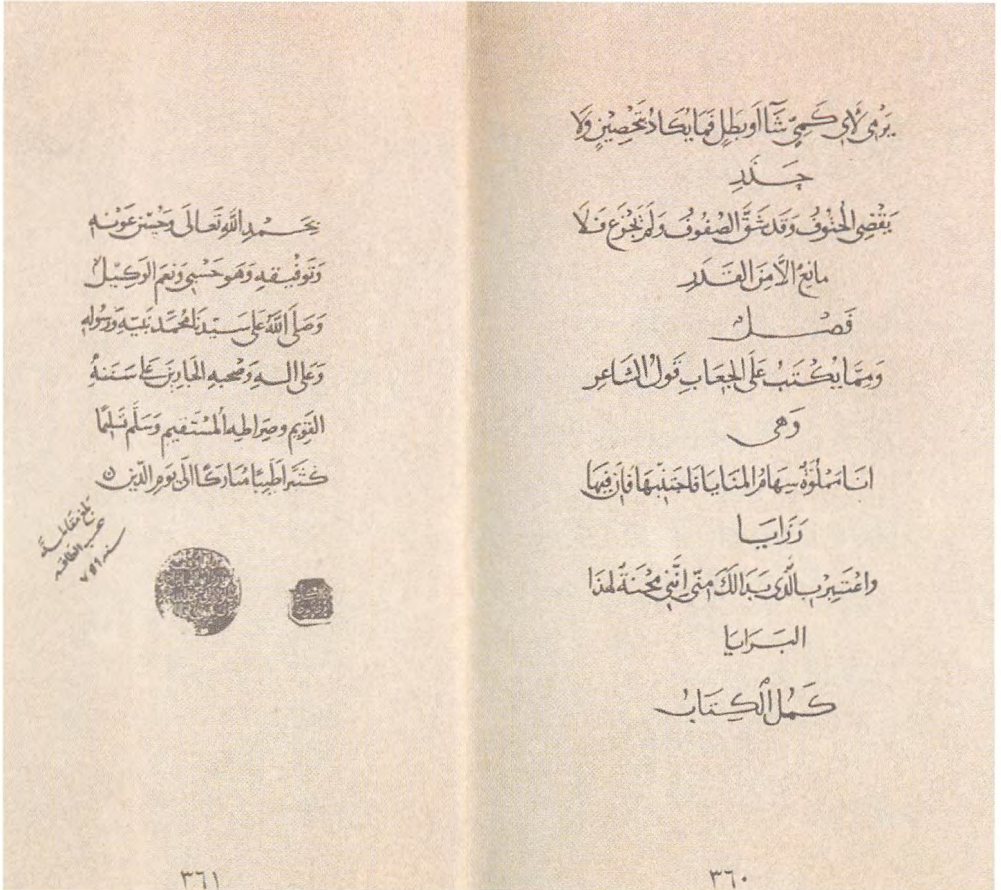 يَرْمِي لِأَيِّ كَمِيٍّ شَآءَ أَوْ بَطَلٍ فَمَا يُكَادُ بِتَحْصِينٍ وَلَا
جَلَدِ
يَقْضِي الحُتُوفَ وَقَد شَقَّ الصُّفُوفَ وَلَم يَجْزَع فَلَا
مانِعُ الَّا مِنَ القَدَرِ
فَصْلٌ
وَمِمَّا يُكْتَبُ عَلَى الجِعَابِ قَوْلُ الشاعِر
وَهي
انا مَمْلُوَّةٌ سِهَامُ المَنَايَا فَاجتَنِبْهَا فَإِنَّ فِيهَا
رَزَايَا
واعْتَبِرْ بِالَّذِي بَدَا لَكَ مِنّي إِنَّنِي مِحْنَةٌ لِهَذَا
البَرَايَا
كَمُلَ الْكِتَابُ
٣٦٠
بِحَمْدِ اللَّهِ تَعَالَى وَحُسْنِ عَوْنِهِ
وَتَوْفِيقِهِ وَهُوَ حَسْبِي وَنِعْمَ الوَكِيلُ
وَصَلَّى اللَّهُ عَلَى سَيِّدِنَا مُحَمَّدٍ نَبِيِّهِ وَرَسُولِهِ
وَعَلَى الِهِ وَصَحْبِهِ عَلَى سَنَنِهِ
القَوِيمِ وَصِرَاطِهِ الْمُسْتَقِيمِ وَسَلَّمَ تَسْلِيمًا
كَثِيرًا طَيِّبًا مُبَارَكًا الَى يَوْمِ الدِّينِ
بلغ مقابلة
حسب الطاقه
سنه ٧٥٩
٣٦١